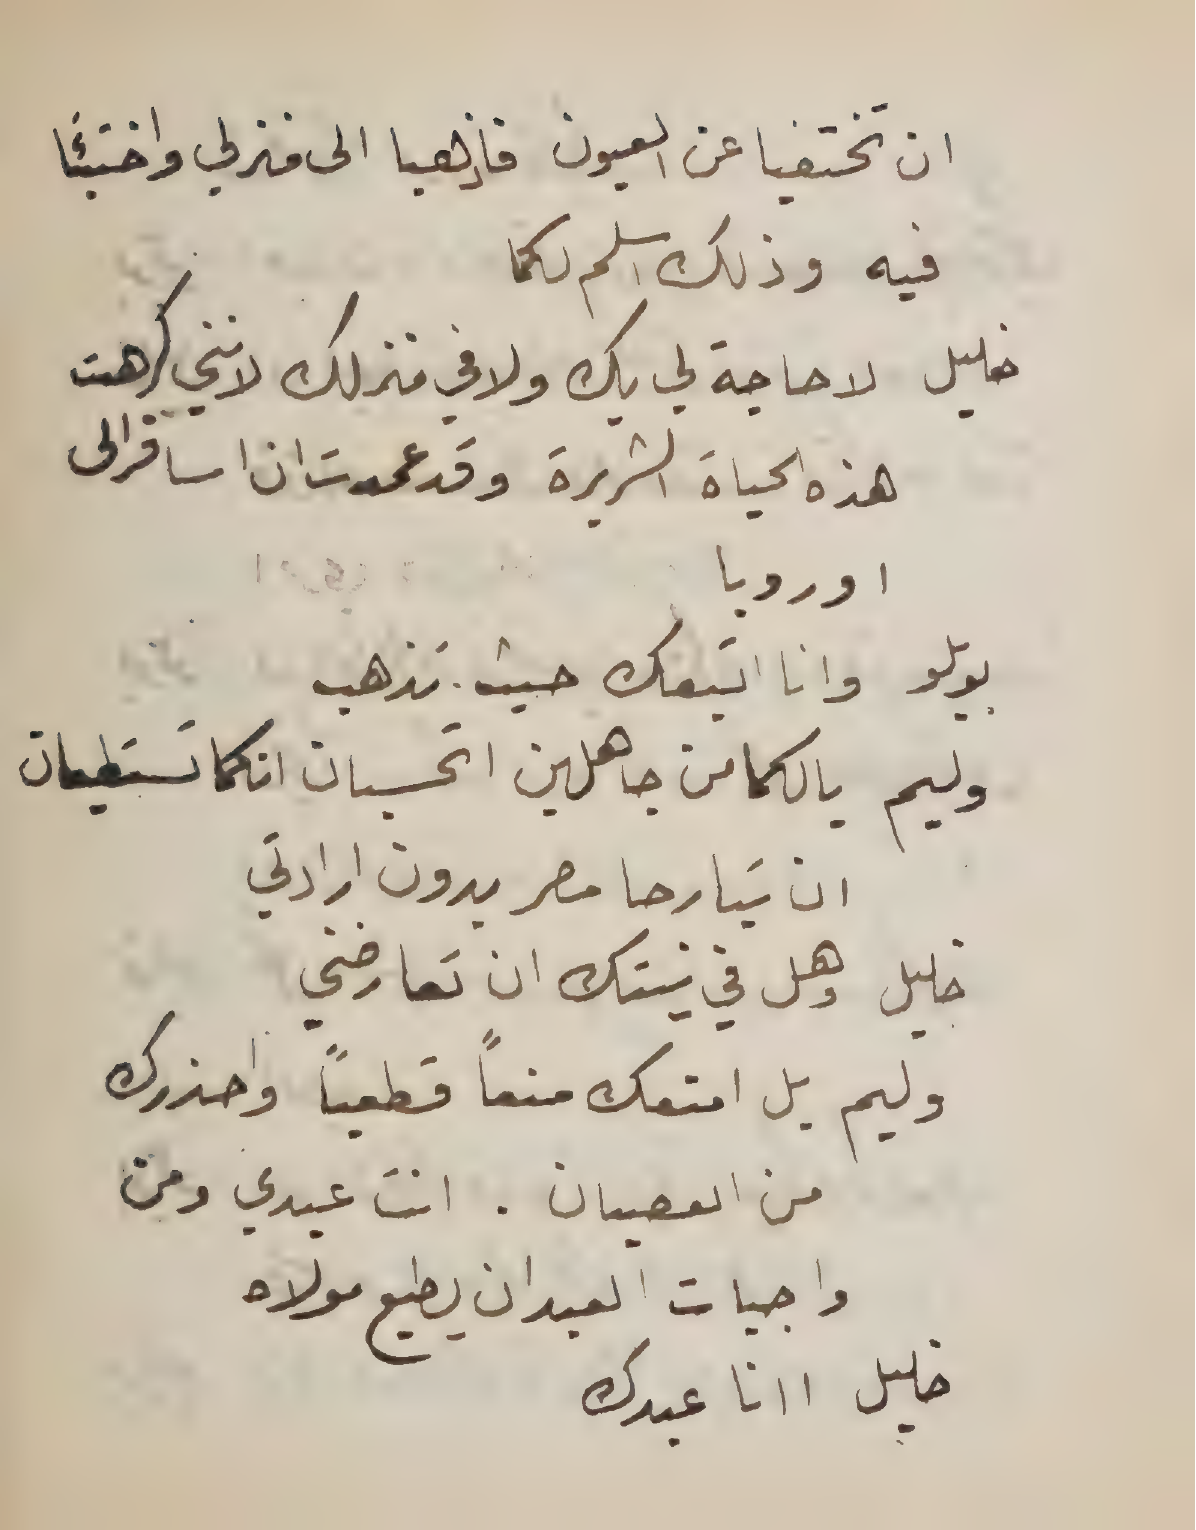 ان تختفيا عن العيون فاذهبا الى منزلي واختبئا
فيه وذلك اسلم لكما
خليل لا حاجة لي بك ولا في منزلك لانني كرهت
هذه الحياة الشريرة وقد عمدت ان اسافر الى
اوروبا
بوللو وانا اتبعك حيث تذهب
وليم يالكما من جاهلين اتحسبان انكما تستطيعان
ان تبارحا مصر بدون ارادتي
خليل وهل في نيتك ان تعارضني
وليم بل امنعك منعاً قطعياً واحذرك
من العصيان . انت عبدي ومن
واجبات العبد ان يطيع مولاه
خليل اانا عبدك